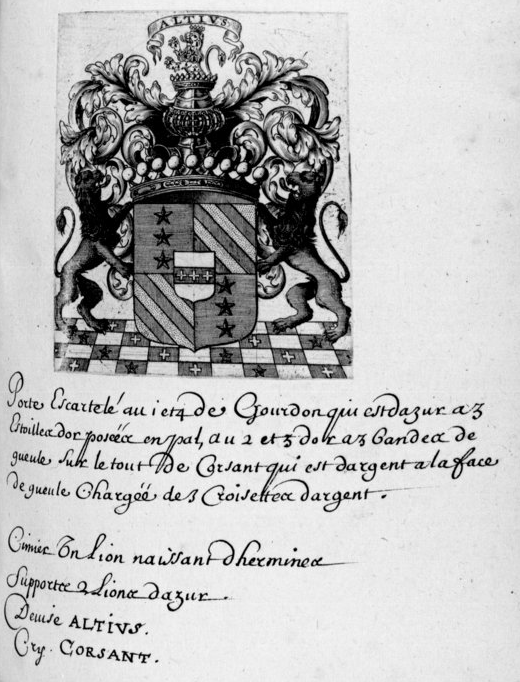 ALTIVS
Porte Escartelé au 1 et 4 de Gourdon qui est dazur a 3
Estoilles dor posées en pal, au 2 et 3 dor a 3 bandes de
gueule sur le tout De Corsant qui est dargent a la face
de gueule Chargéé de 3 Croisettes dargent.
Cimier Un Lion naissant dhermines
Supportes 2 Lions dazur.
Devise ALTIVS.
Cry. CORSANT.